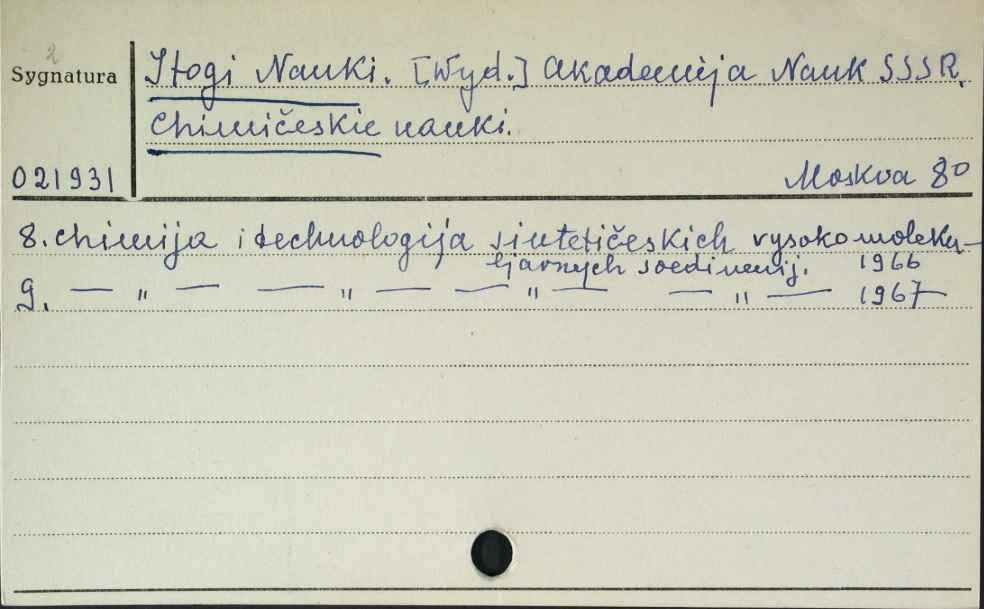 2
Sygnatura
Itogi Nauki. [Wyd.] Akademija Nauk SSSR.
Chimičeskie nauki.
021931
Moskva 8⁰
8. Chimija i technologija sintetičeskich vysokomoleku-
ljarnych soedinenij. 1966
9. — " — — " — — " — — " — 1967